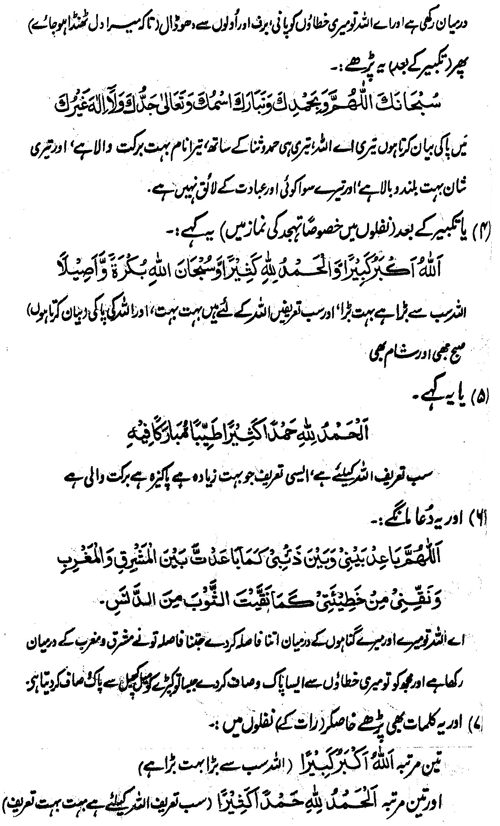 درمیان رکھی ہے اور اے اللہ تو میری خطاؤں کو پانی، برف اور اُولوں سے دھو ڈال (تاکہ میرا دل ٹھنڈا ہو جائے)
پھر (تکبیر کے بعد) یہ پڑھے :۔
سُبْحَانَكَ اللّٰهُمَّ وَبِحَمْدِكَ وَتَبَارَكَ اسْمُكَ وَتَعَالٰى جَدُّكَ وَلَا اِلٰهَ غَيْرُكَ
میں پاکی بیان کرتا ہوں تیری اے اللہ، تیری ہی حمد و ثنا کے ساتھ، تیرا نام بہت برکت والا ہے، اور تیری
شان بہت بلند و بالا ہے، اور تیرے سوا کوئی اور عبادت کے لائق نہیں ہے۔
(۴) یا تکبیر کے بعد (نفلوں میں خصوصًا تہجد کی نماز میں) یہ کہے :۔
اَللّٰهُ اَكْبَرُ كَبِيْرًا وَّالْحَمْدُ لِلّٰهِ كَثِيْرًا وَّسُبْحَانَ اللّٰهِ بُكْرَةً وَّاَصِيْلًا
اللہ سب سے بڑا ہے بہت بڑا، اور سب تعریفیں اللہ کے لئے ہیں بہت بہت، اور اللہ کی پاکی (بیان کرتا ہوں)
صبح بھی اور شام بھی
(۵) یا یہ کہے۔
اَلْحَمْدُ لِلّٰهِ حَمْدًا كَثِيْرًا طَيِّبًا مُّبَارَكًا فِيْهِ
سب تعریف اللہ کیلئے ہے، ایسی تعریف جو بہت زیادہ ہے پاکیزہ ہے برکت والی ہے
(۶) اور یہ دُعا مانگے :۔
اَللّٰهُمَّ بَاعِدْ بَيْنِيْ وَبَيْنَ ذَنْبِيْ كَمَا بَاعَدْتَّ بَيْنَ الْمَشْرِقِ وَالْمَغْرِبِ
وَنَقِّنِيْ مِنْ خَطِيْئَتِيْ كَمَا نَقَّيْتَ الثَّوْبَ مِنَ الدَّنَسِ۔
اے اللہ تو میرے اور میرے گناہوں کے درمیان اتنا فاصلہ کردے جتنا فاصلہ تو نے مشرق و مغرب کے درمیان
رکھا ہے اور مجھ کو تو میری خطاؤں سے ایسا پاک و صاف کردے جیسا تو کپڑے کو میل کچیل سے پاک صاف کر دیتا ہے:
(۷) اور یہ کلمات بھی پڑھے خاصکر (رات کے) نفلوں میں :۔
تین مرتبہ اَللّٰهُ اَكْبَرُ كَبِيْرًا (اللہ سب سے بڑا بہت بڑا ہے)
اور تین مرتبہ اَلْحَمْدُ لِلّٰهِ حَمْدًا كَثِيْرًا (سب تعریف اللہ کیلئے ہے بہت بہت تعریف)